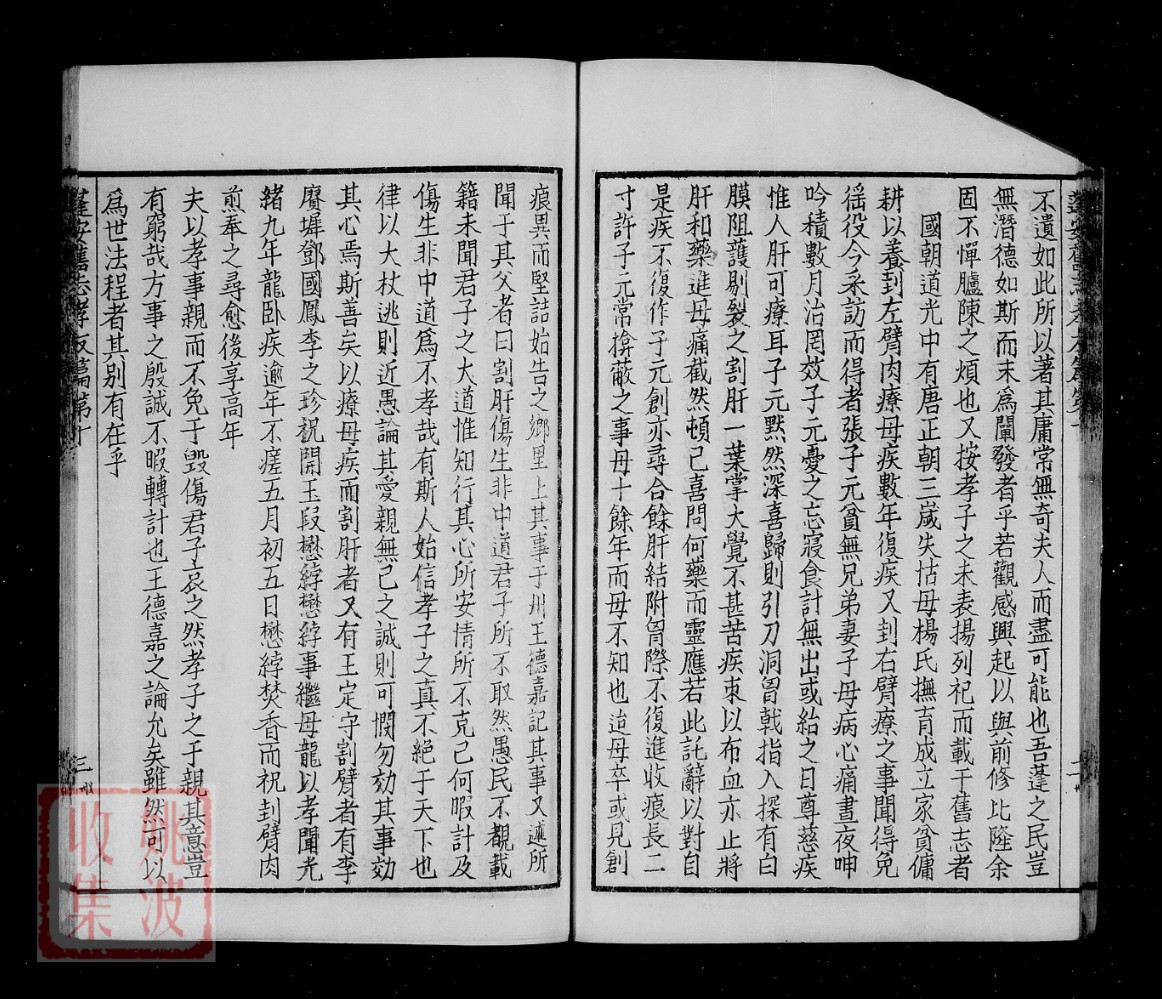 不遺如此所以著其庸常無奇夫人而盡可能也吾蓬之民豈
無潛德如斯而未爲闡發者乎若觀感興起以與前修比隆余
固不憚臚陳之煩也又按孝子之未表揚列祀而載于舊志者
國朝道光中有唐正朝三歲失怙母楊氏撫育成立家貧傭
耕以養刲左臂肉療母疾數年復疾又刲右臂療之事聞得免
徭役今采訪而得者張子元貧無兄弟妻子母病心痛晝夜呻
吟積數月治罔效子元憂之忘寢食計無出或紿之曰尊慈疾
惟人肝可療耳子元默然深喜歸則引刀洞胷戟指入探有白
膜阻護剔裂之割肝一葉掌大覺不甚苦疾束以布血亦止將
肝和藥進母痛截然頓已喜問何藥而靈應若此託辭以對自
是疾不復作子元創亦尋合餘肝結附胷際不復進收痕長二
寸許子元常揜蔽之事母十餘年而母不知也迨母卒或見創
痕異而堅詰始告之鄉里上其事于州王德嘉記其事又述所
聞于其父者曰割肝傷生非中道君子所不取然愚民不覩載
籍未聞君子之大道惟知行其心所安情所不克已何暇計及
傷生非中道爲不孝哉有斯人始信孝子之真不絕于天下也
律以大杖逃則近愚論其愛親無已之誠則可憫勿効其事効
其心焉斯善矣以療母疾而割肝者又有王定守割臂者有李
膺墀鄧國鳳李之珍祝開玉段懋綍懋綍事繼母龍以孝聞光
緒九年龍卧疾逾年不瘥五月初五日懋綍焚香而祝刲臂肉
煎奉之尋愈後享高年
夫以孝事親而不免于毀傷君子哀之然孝子之于親其意豈
有窮哉方事之殷誠不暇轉計也王德嘉之論允矣雖然可以
爲世法程者其別有在乎
蓬安舊志孝友篇第十
三
姚波
收集